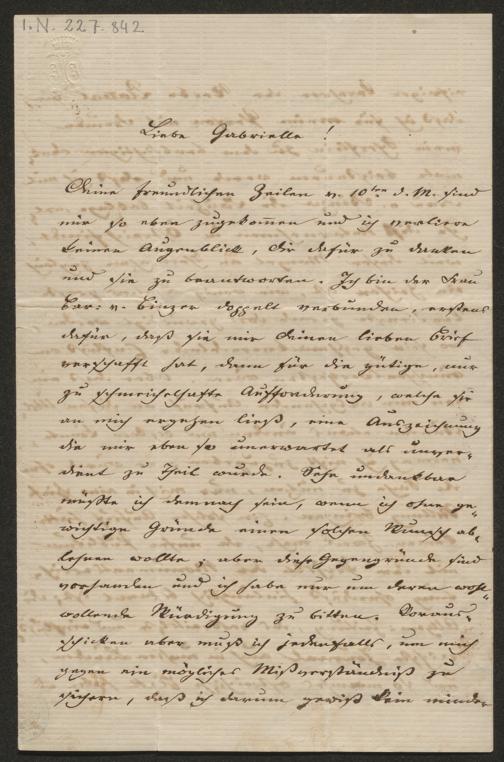 I.N. 227.842
Liebe Gabrielle!
Deine freundlichen Zeilen v. 10ten d. M. sind
mir so eben zugekommen und ich verliere
keinen Augenblick, dir dafür zu danken
und sie zu beantworten. Ich bin der Frau
Bar: v. Binzer doppelt verbunden, erstens
dafür, daß sie mir Deinen lieben Brief
verschafft hat, dann für die gütige, nur
zu schmeichelhafte Aufforderung, welche sie
an mich ergehen ließ, eine Auszeichnung
die mir eben so unerwartet als unver-
dient zu Theil wurde. Sehr undankbar
müßte ich demnach sein, wenn ich ohne ge-
wichtige Gründe einen solchen Wunsch ab-
lehnen wollte; aber diese Gegengründe sind
vorhanden und ich habe nur um deren wohl-
wollende Würdigung zu bitten. Voraus-
schicken aber muß ich jedenfalls, um mich
gegen ein mögliches Mißverständniß zu
sichern, daß ich darum gewiß kein minder